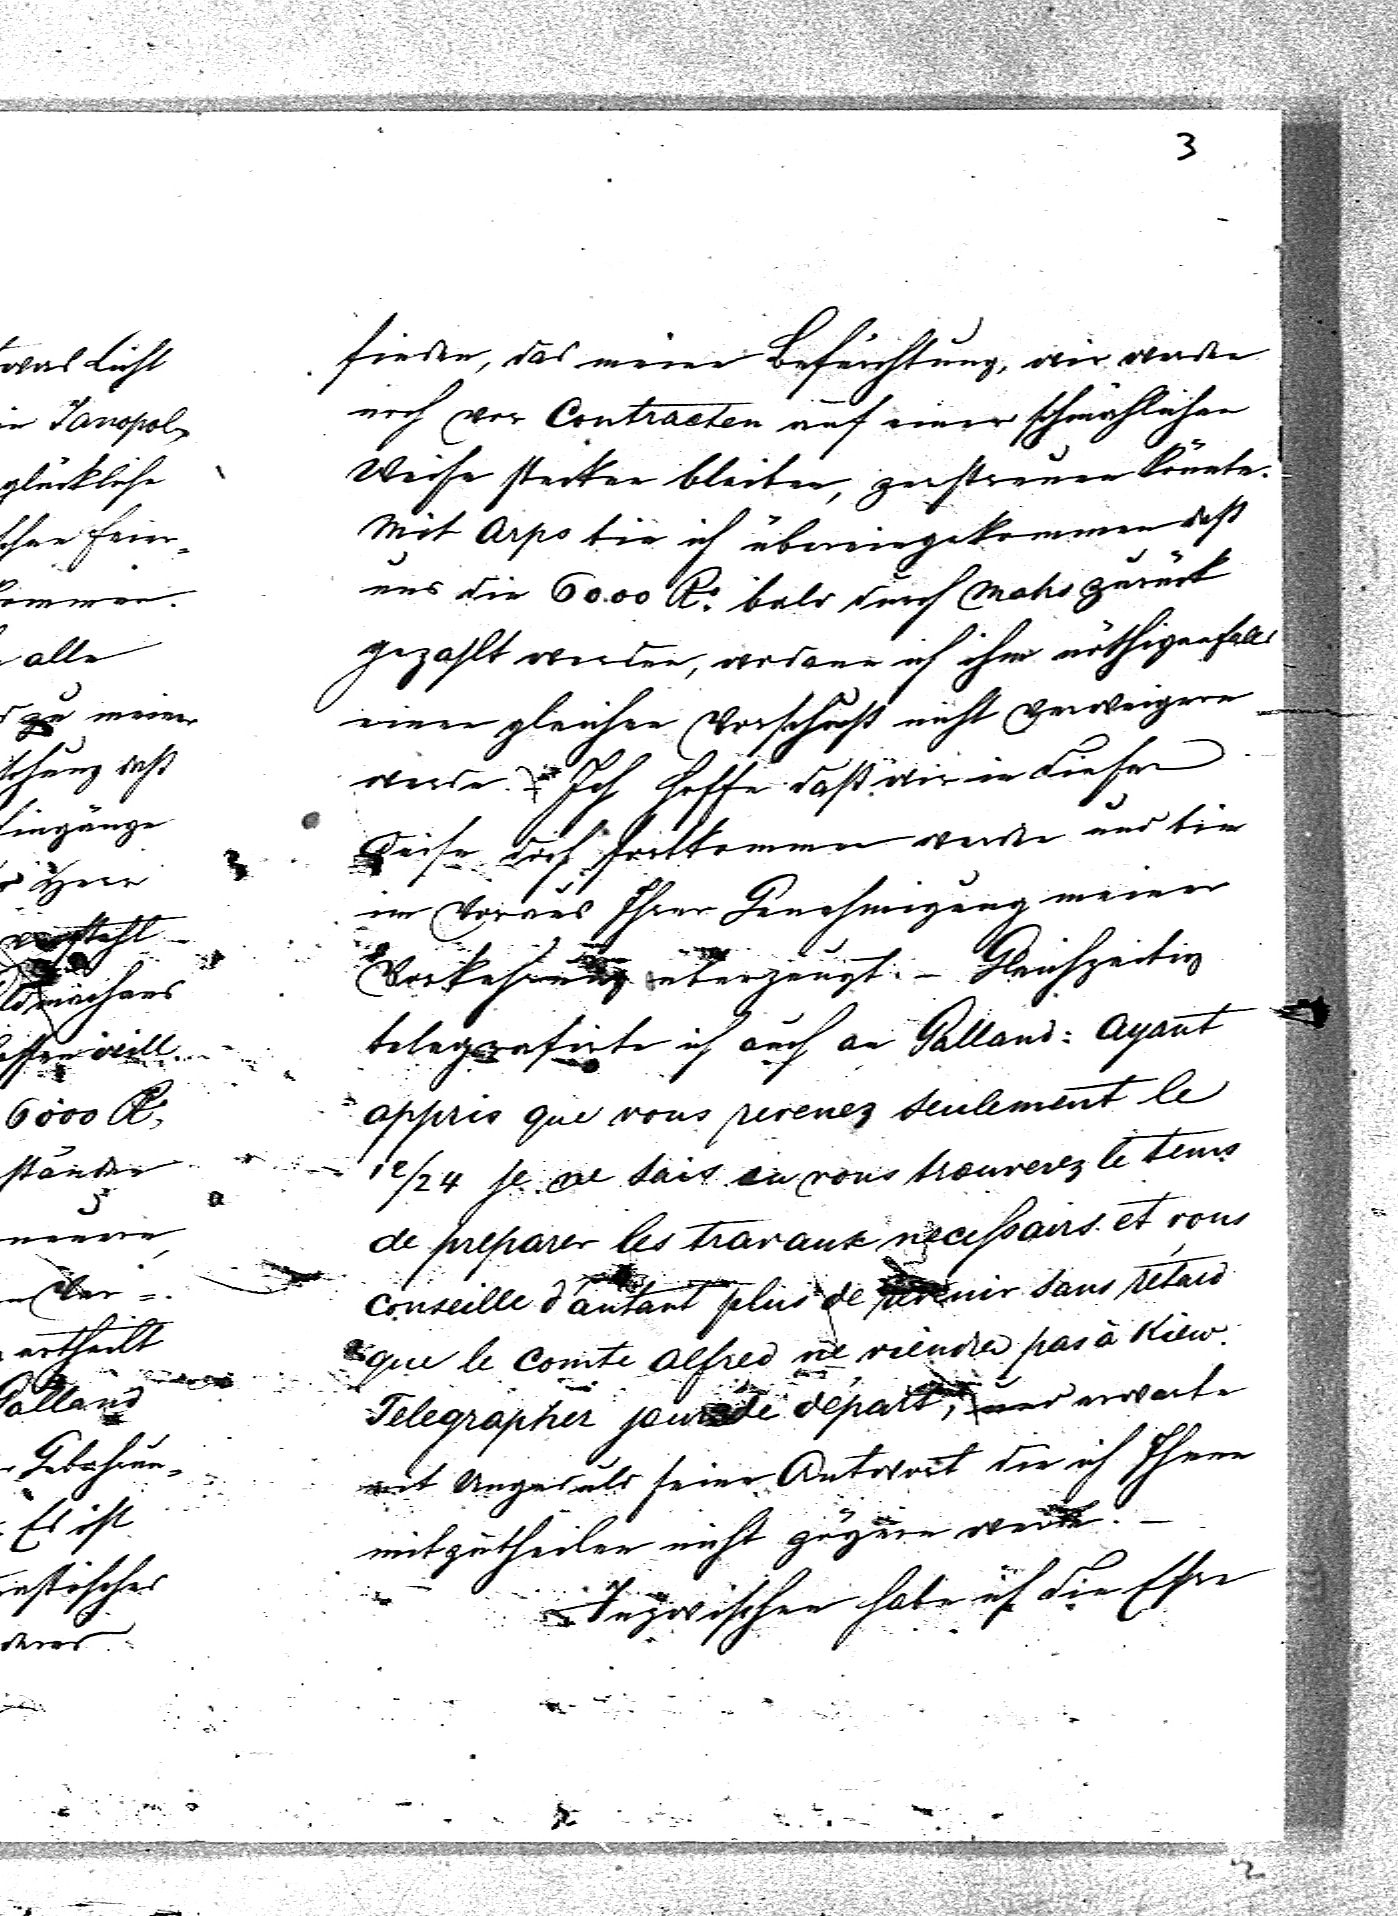 3
finden, das meine Befürchtung, wir werden
noch vor Contracten auf einer schmählichen
Weise stecken bleiben, zerstreuen könnte.
Mit Arps bin ich übereingekommen daß
uns die 6000 R. bald durch Mahs zurück
gezahlt werden, wodann ich ihm nöthigenfalls
einen gleichen Vorschuß nicht verweigern
werde. – Ich hoffe daß wir in dieser
Weise doch fortkommen werden und bin
im Voraus Ihrer Genehmigung meiner
Vorkehrung überzeugt. – Gleichzeitig
telegrafirte ich auch an Palland: Ayant
appris que vous revenez seulement le
12/24 je ne sais ou vous trouverez le tems
de preparer les travaux necessairs et vous
conseille d'autant plus de revenir sans retard
que le comte Alfred ne viendra pas à Kiew.
Telegraphier jour de départ, und erwarte
mit Ungeduld seine Antwort die ich Ihnen
mitzutheilen nicht zögern werde. –
Inzwischen habe ich die Ehre
Licht
in Janopol,
glückliche
feier=
kommen.
alle
zu meiner
daß
Eingänge
Herr
versteht
will
6000 R.
ständen
ertheilt
Palland
Gebahrun=
Es ist
2